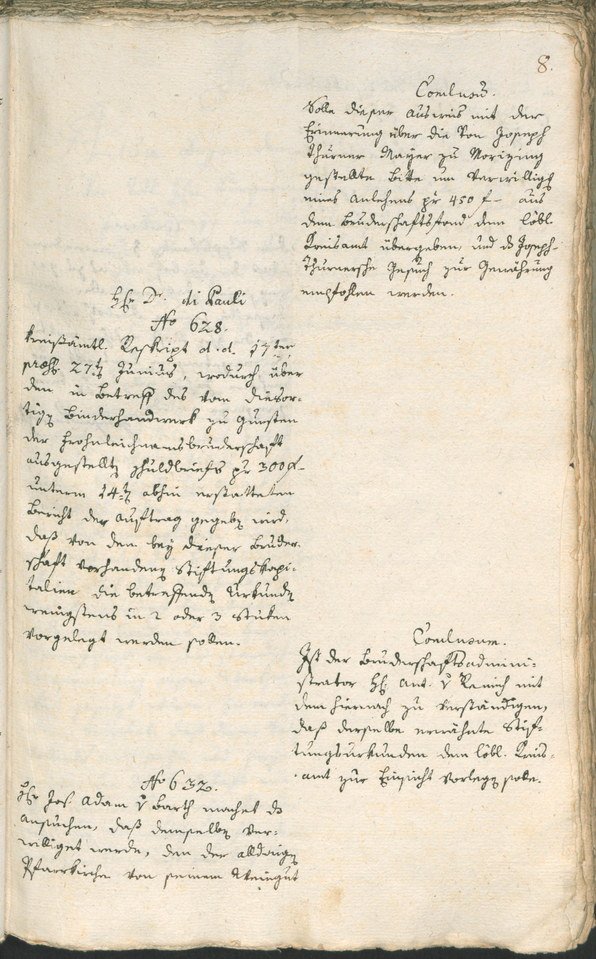 8.
Conclusum.
Solle dieser Ausweis mit der
Erinnerung über die von Joseph
Thurner Mayer zu Morizing
gestellte Bitte um Verwilligung
eines Anlehens pr 450 f aus
dem Bruderschaftsfond dem löbl.
Kreisamt übergeben, und ds Joseph
Thurnersche Gesuch zur Gewährung
empfohlen werden.
Hr Dr. di Pauli
No 628.
Kreisämtl. Reskript d. d. 17ten
praes. 27t Junius, wodurch über
den in Betreff des vom diesor-
tigen Binderhandwerk zu Gunsten
der Frohnleichnamsbruderschaft
ausgestellten Schuldbriefs pr 300 f
unterm 14t abhin erstatteten
Bericht der Auftrag gegeben wird,
daß von den bey dieser Bruder-
schaft vorhandenen Stiftungskapi-
talien die betreffenden Urkunden
wenigstens in 2 oder 3 Stüken
vorgelegt werden sollen.
Conclusum.
Ist der Bruderschaftsadmini-
strator Hr Ant. v Remich mit
dem hiernach zu verständigen,
daß derselbe erwähnte Stif-
tungsurkunden dem löbl. Kreis-
amt zur Einsicht vorlegen solle.
No 632.
Hr Jos. Adam v Barth machet ds
Ansuchen, daß demselben ver-
williget werde, den der alldortigen
Pfarrkirche von seinem Weingut